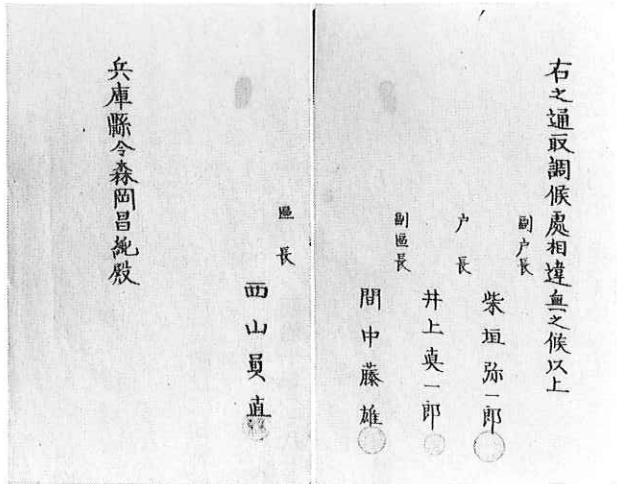 右之通取調候處相違無之候以上
副戸長
柴垣弥一郎
戸長
井上真一郎
副區長
間中藤雄
區長
西山員直
兵庫縣令森岡昌純殿